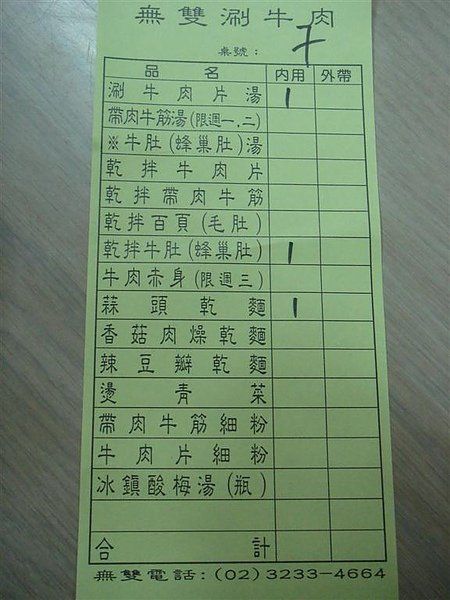 無雙涮牛肉
桌號：7
品名 內用 外帶
涮牛肉片湯 1
帶肉牛筋湯(限週一.二)
※牛肚(蜂巢肚)湯
乾拌牛肉片
乾拌帶肉牛筋
乾拌百頁(毛肚)
乾拌牛肚(蜂巢肚) 1
牛肉赤身(限週三)
蒜頭乾麵 1
香菇肉燥乾麵
辣豆瓣乾麵
燙青菜
帶肉牛筋細粉
牛肉片細粉
冰鎮酸梅湯(瓶)
合計
無雙電話:(02)3233-4664